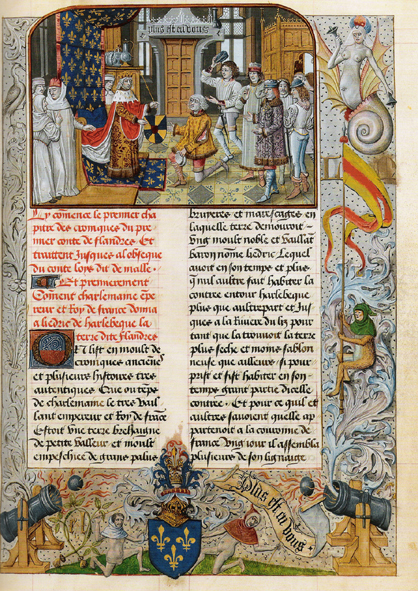 plus est en vous
Cy cõmence le premier cha
pitre des croniques du pre
mier conte de flandres Et
traittent jusques al obseque
du conte loys dit de malle.
Et premierement
Cõment charlemaine Ẽpe
reur et Roy de france donna
a liedric de harlebeque la
terre dite flandres
E list en moult de
croniques anciẽnes
et plusieurs histoires tres
autentiques Que ou temps
de charlemaine le tres vail
lant empereur et Roy de frãce
Estoit une terre brehaigne
de petite valleur et moult
empeschiee de grans palus
bruyeres et marescages en
laquelle terre demouroit –
Ung moult noble et vaillãt
baron nõme liedric Lequel
auoit en son temps et plus
q nul aultre fait habiter la
contree entour harlebeque
plus que aultrepart et jus
ques a la Riuiere du liz pour
tant que la trouuoit la terre
plus seche et moins sablon
neuse que ailleurs / si pour
prist et fist habiter en son
temps grant partie dicelle
contree · Et pour ce quil et
aultres sauoient quelle ap
partenoit a la couronne de
france Ung jour il assembla
plusieurs de son lignaige
plus est en vous